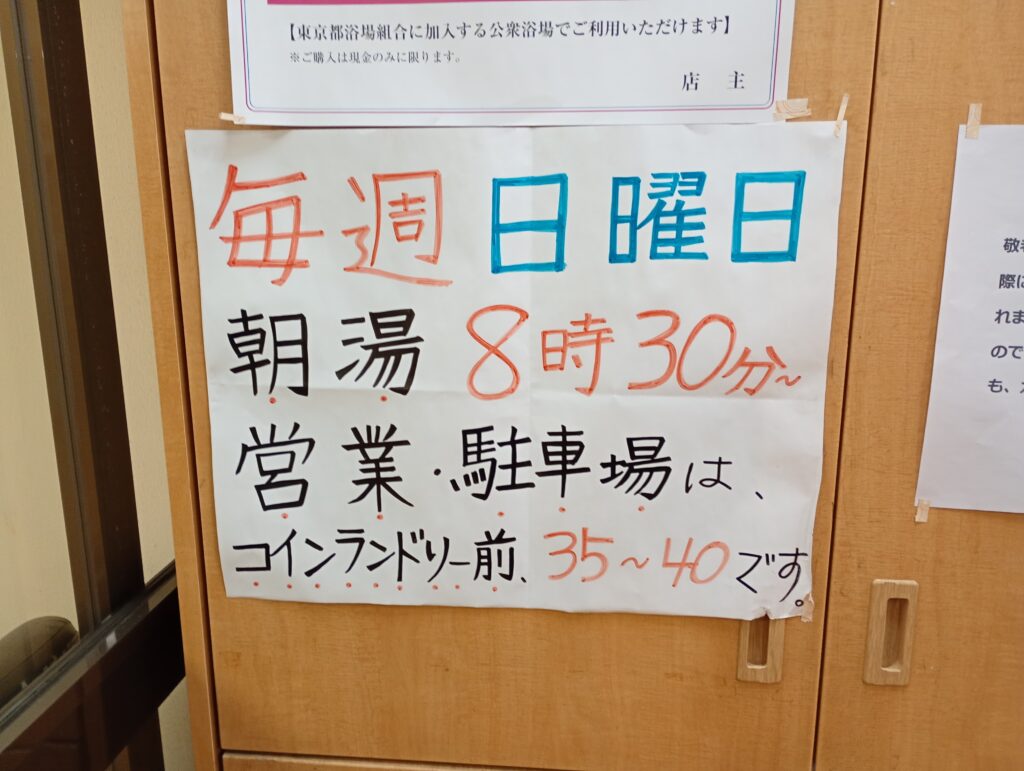 【東京都浴場組合に加入する公衆浴場でご利用いただけます】
※ご購入は現金のみに限ります。
店 主
毎週日曜日
朝湯 8時30分~
営業・駐車場は、
コインランドリー前、35~40です。
敬
際に
れま
ので
も、